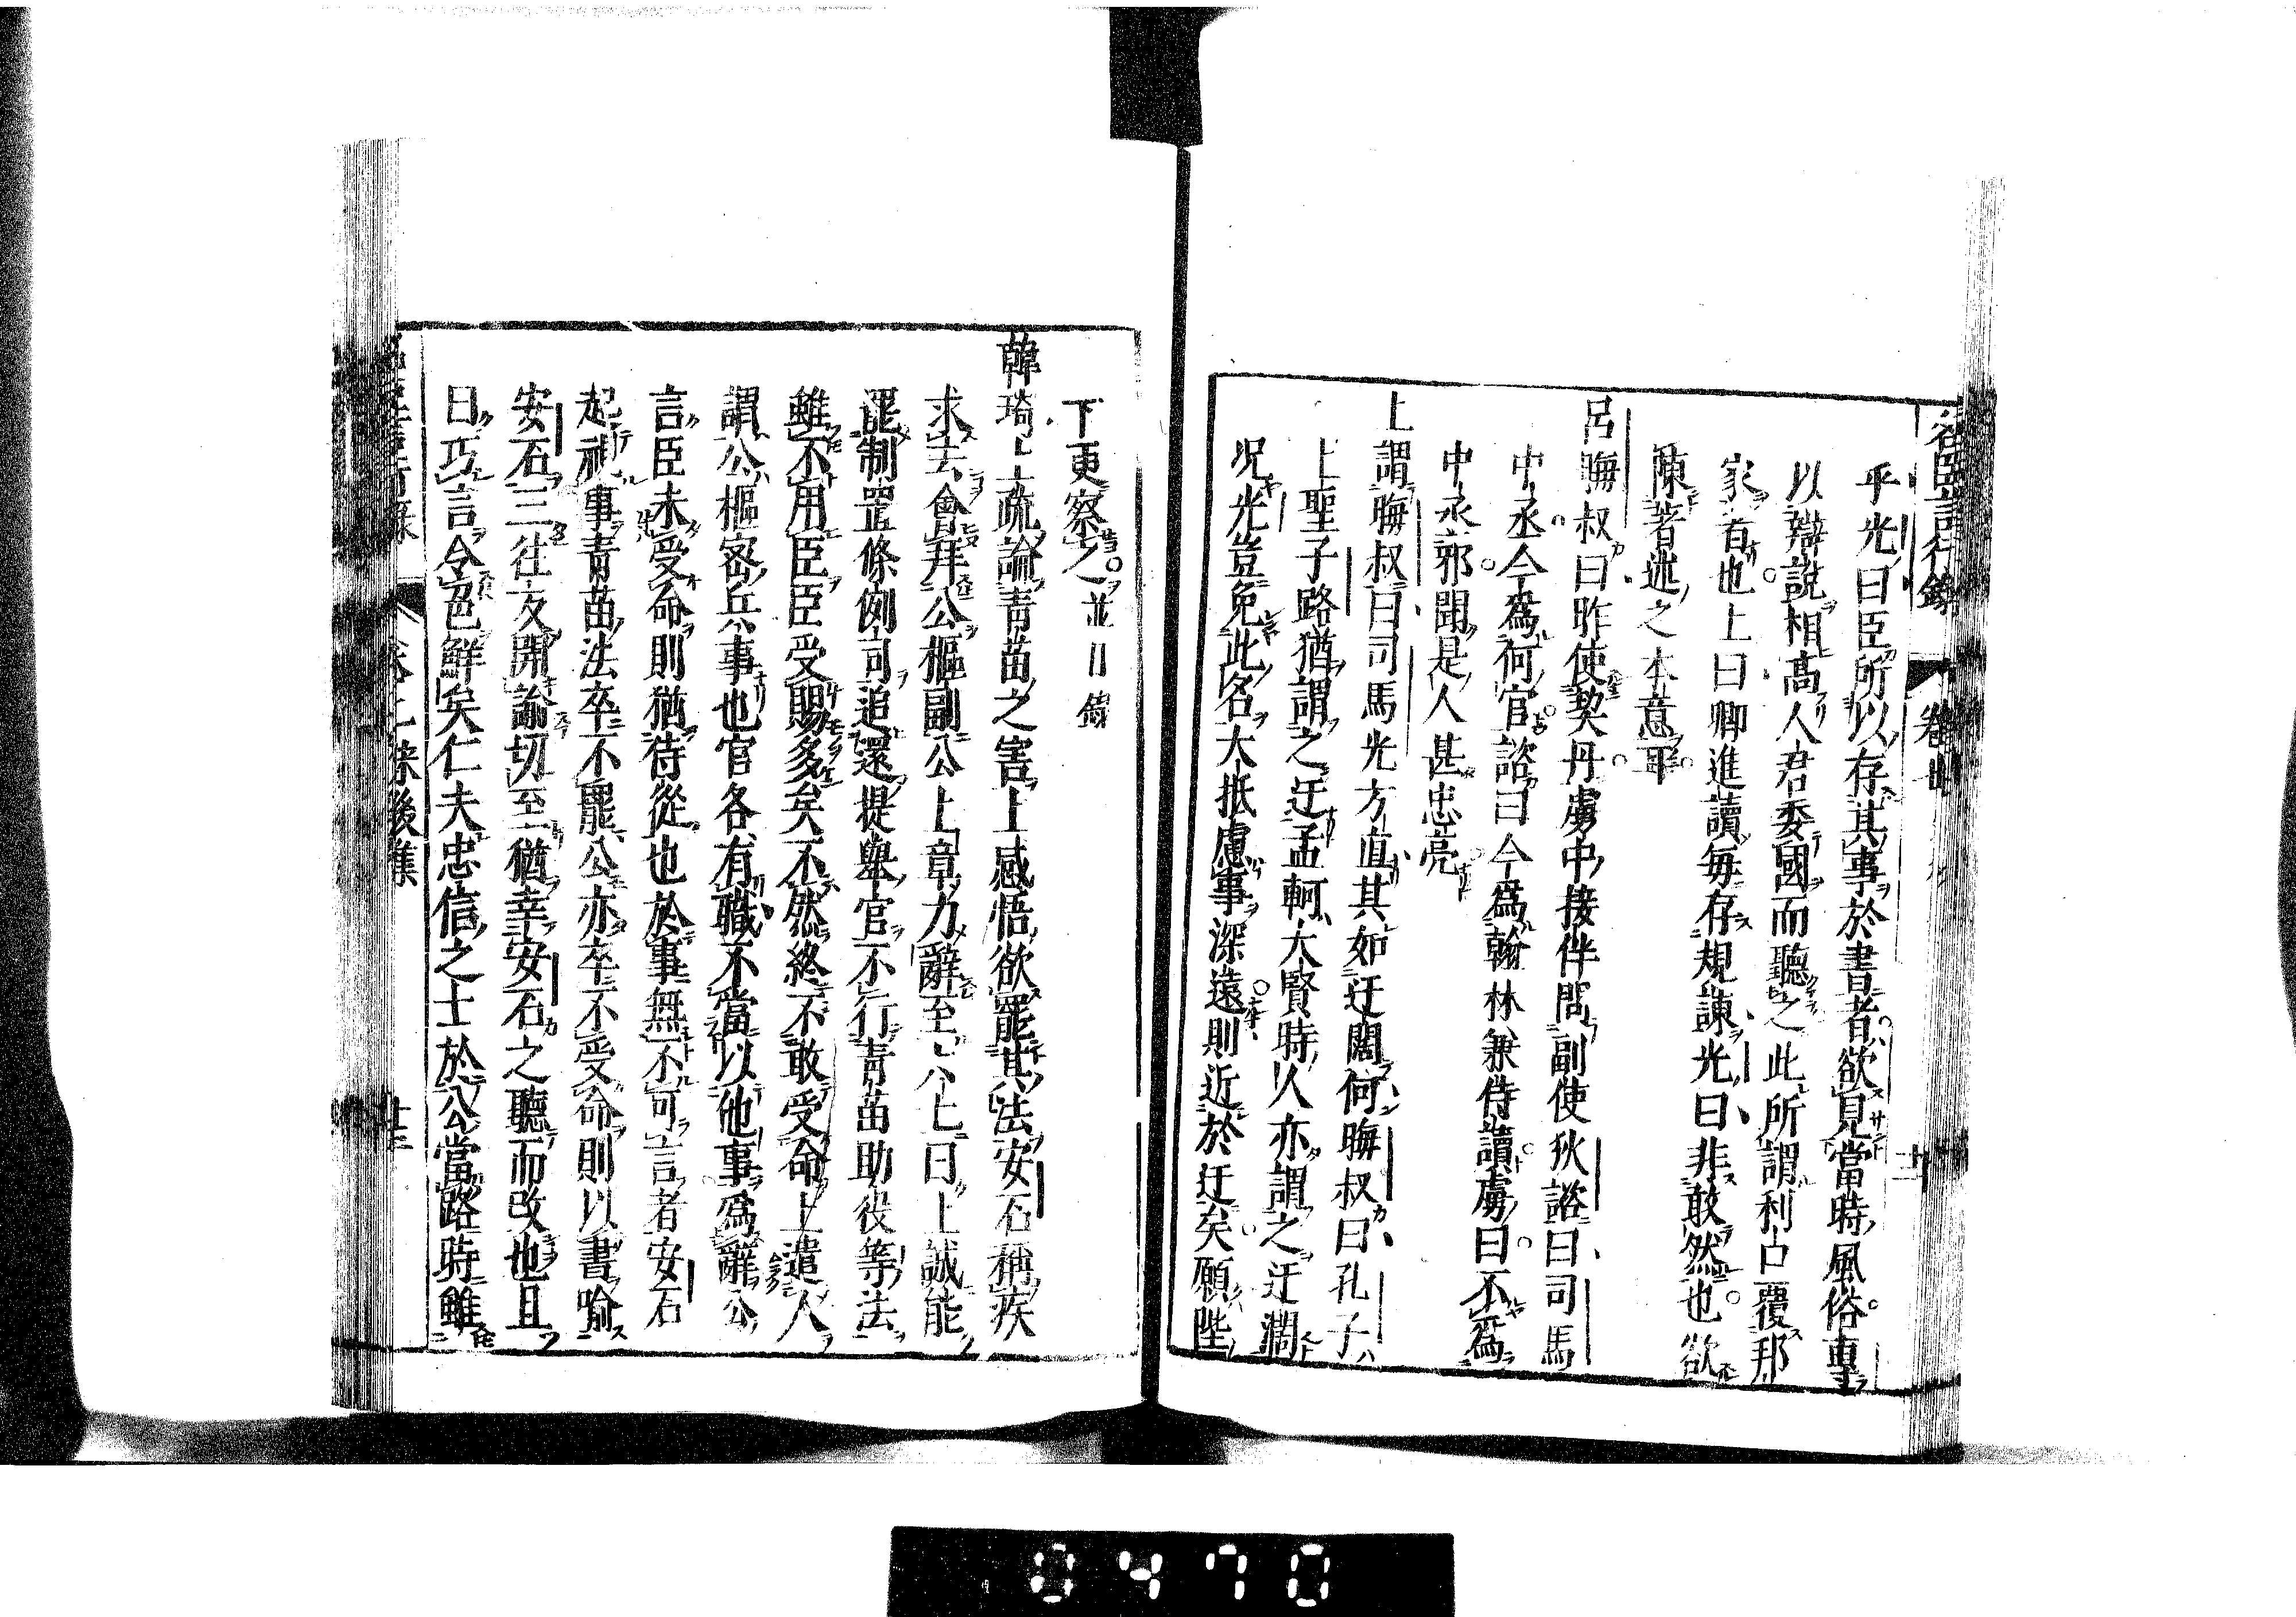 名臣言行錄 卷
乎光曰臣所以存其事於書者欲見當時風俗專
以辯說相高人君委國而聽之此所謂利口覆邦
家者也上曰卿進讀每存規諫光曰非敢然也欲
陳著述之本意耳
呂晦叔曰昨使契丹虜中接伴問副使狄諮曰司馬
中丞今爲何官諮曰今爲翰林兼侍讀虜曰不爲
中丞邪聞是人甚忠亮
上謂晦叔曰司馬光方直其如迂闊何晦叔曰孔子
上聖子路猶謂之迂孟軻大賢時人亦謂之迂濶
况光豈免此名大抵慮事深遠則近於迂矣願陛
下更察之並日錄
韓琦上疏論青苗之害上感悟欲罷其法安石稱疾
求去會拜公樞副公上章力辭至六七曰上誠能
罷制置條例司追還提舉官不行青苗助役等法
雖不用臣臣受賜多矣不然終不敢受命上遣人
謂公樞密兵事也官各有職不當以他事爲辭公
言臣未受命則猶侍從也於事無不可言者安石
起視事青苗法卒不罷公亦卒不受命則以書喻
安石三往反開諭切至猶幸安石之聽而改也且
曰巧言令色鮮矣仁夫忠信之士於公當路時雖
後集
0470